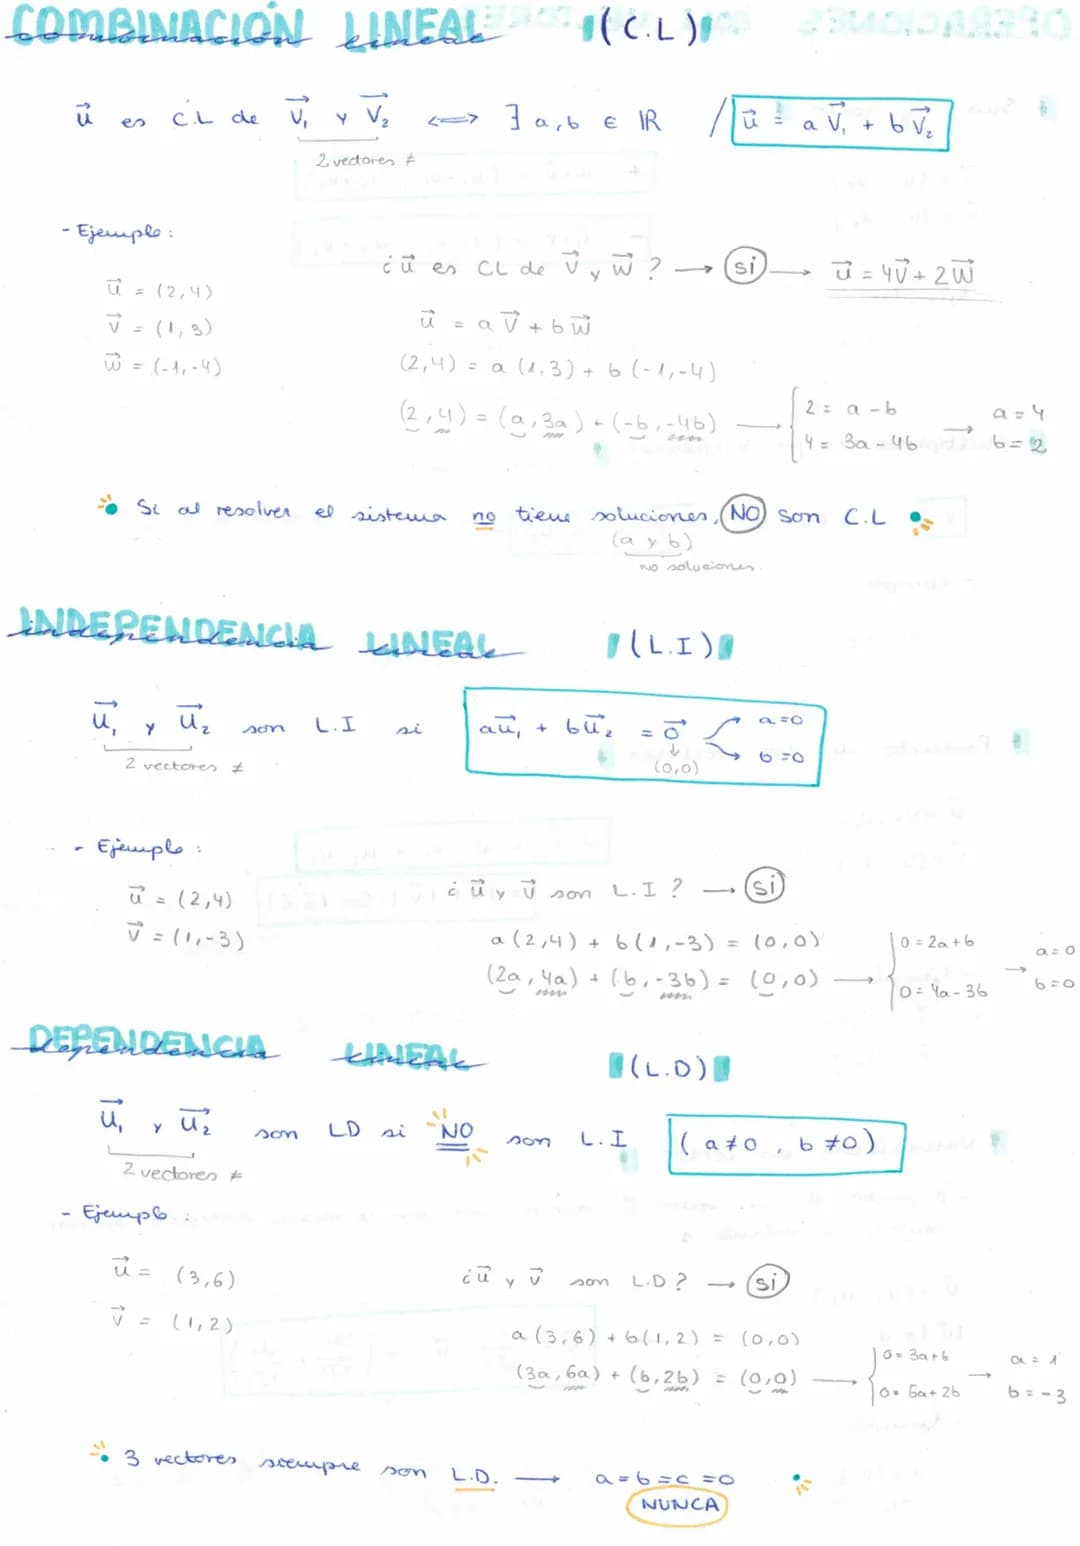 COMBINACIÓN LINEAL (C.L)
combinación lineal
u⃗ es C.L de V₁⃗ y V₂⃗ ⟺ ∃ a,b ∈ ℝ / u⃗ = a V₁⃗ + b V₂⃗
2 vectores ≠
- Ejemplo:
¿ u⃗ es CL de V⃗ y W⃗ ? → si → u⃗ = 4V⃗ + 2W⃗
u⃗ = (2,4)
v⃗ = (1,3)
w⃗ = (-1,-4)
u⃗ = a V⃗ + b W⃗
(2,4) = a (1,3) + b (-1,-4)
(2,4) = (a,3a) + (-b,-4b) → { 2 = a - b → a = 4
4 = 3a - 4b b = 2
Si al resolver el sistema no tiene soluciones, NO son C.L
(a y b)
no soluciones.
INDEPENDENCIA LINEAL (L.I)
independencia lineal
u₁⃗ y u₂⃗ son L.I si au₁⃗ + bu₂⃗ = 0⃗ a=0
b=0
(0,0)
2 vectores ≠
- Ejemplo:
u⃗ = (2,4)
v⃗ = (1,-3)
¿ u⃗ y v⃗ son L.I ? → si
a (2,4) + b (1,-3) = (0,0)
(2a,4a) + (b,-3b) = (0,0) → { 0 = 2a + b → a=0
0 = 4a - 3b b=0
DEPENDENCIA LINEAL (L.D)
dependencia lineal
u₁⃗ y u₂⃗ son LD si NO son L.I (a≠0, b≠0)
2 vectores ≠
- Ejemplo:
u⃗ = (3,6)
v⃗ = (1,2)
¿ u⃗ y v⃗ son L.D ? → si
a (3,6) + b (1,2) = (0,0)
(3a,6a) + (b,2b) = (0,0) → { 0 = 3a + b → a = 1
0 = 6a + 2b b = -3
3 vectores siempre son L.D. → a=b=c=0
NUNCA